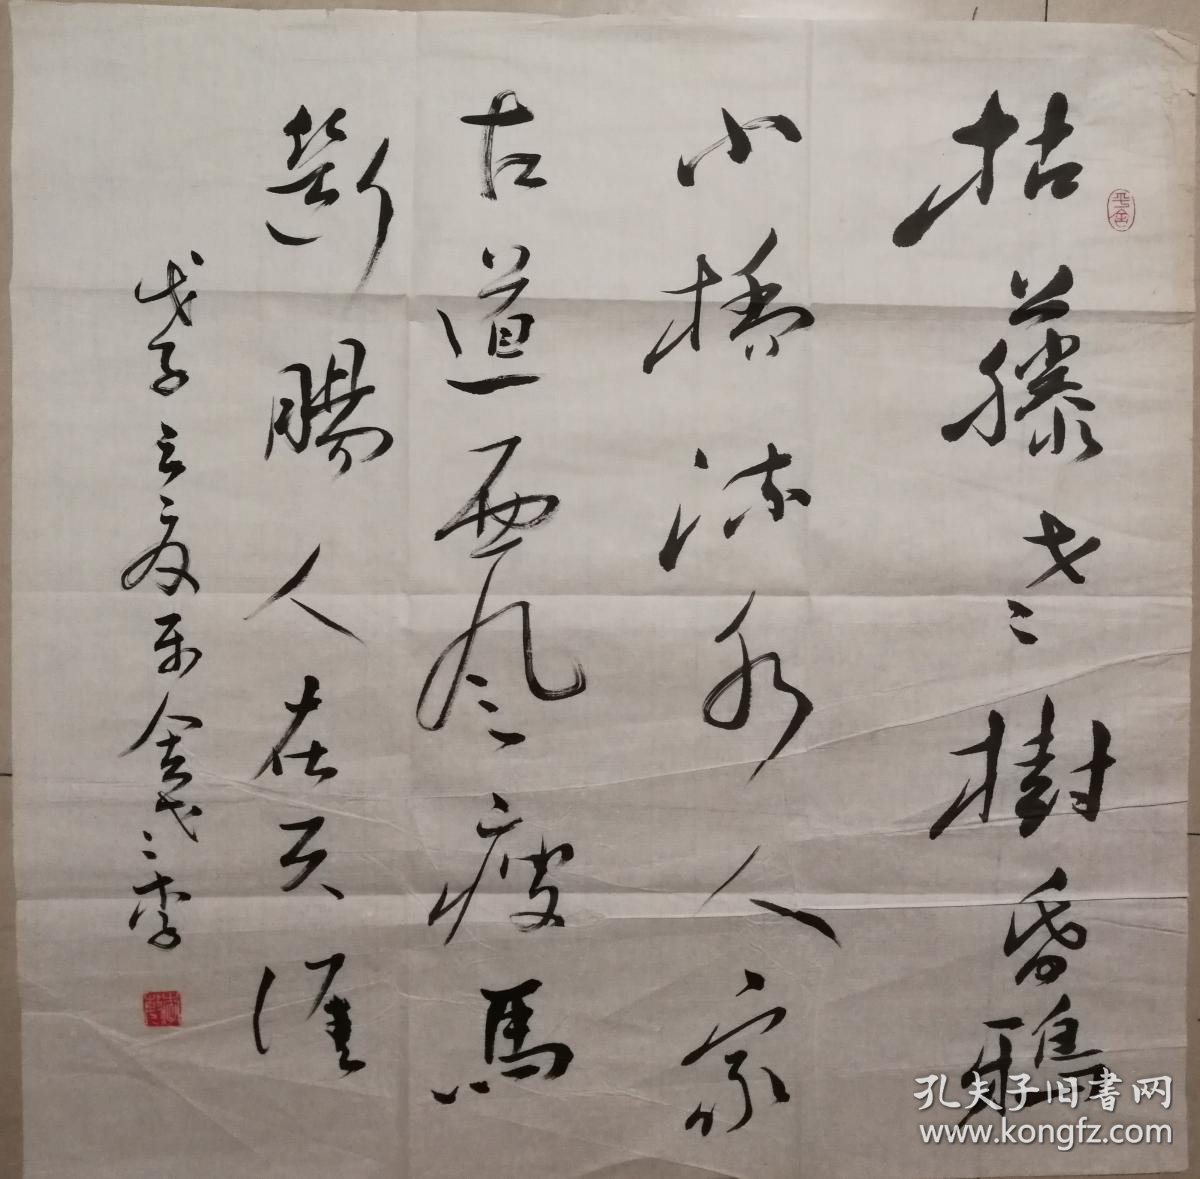 枯藤老樹昏鴉
小橋流水人家
古道西風瘦馬
斷腸人在天涯
戊子之夏
孔夫子旧書网
www.kongfz.com